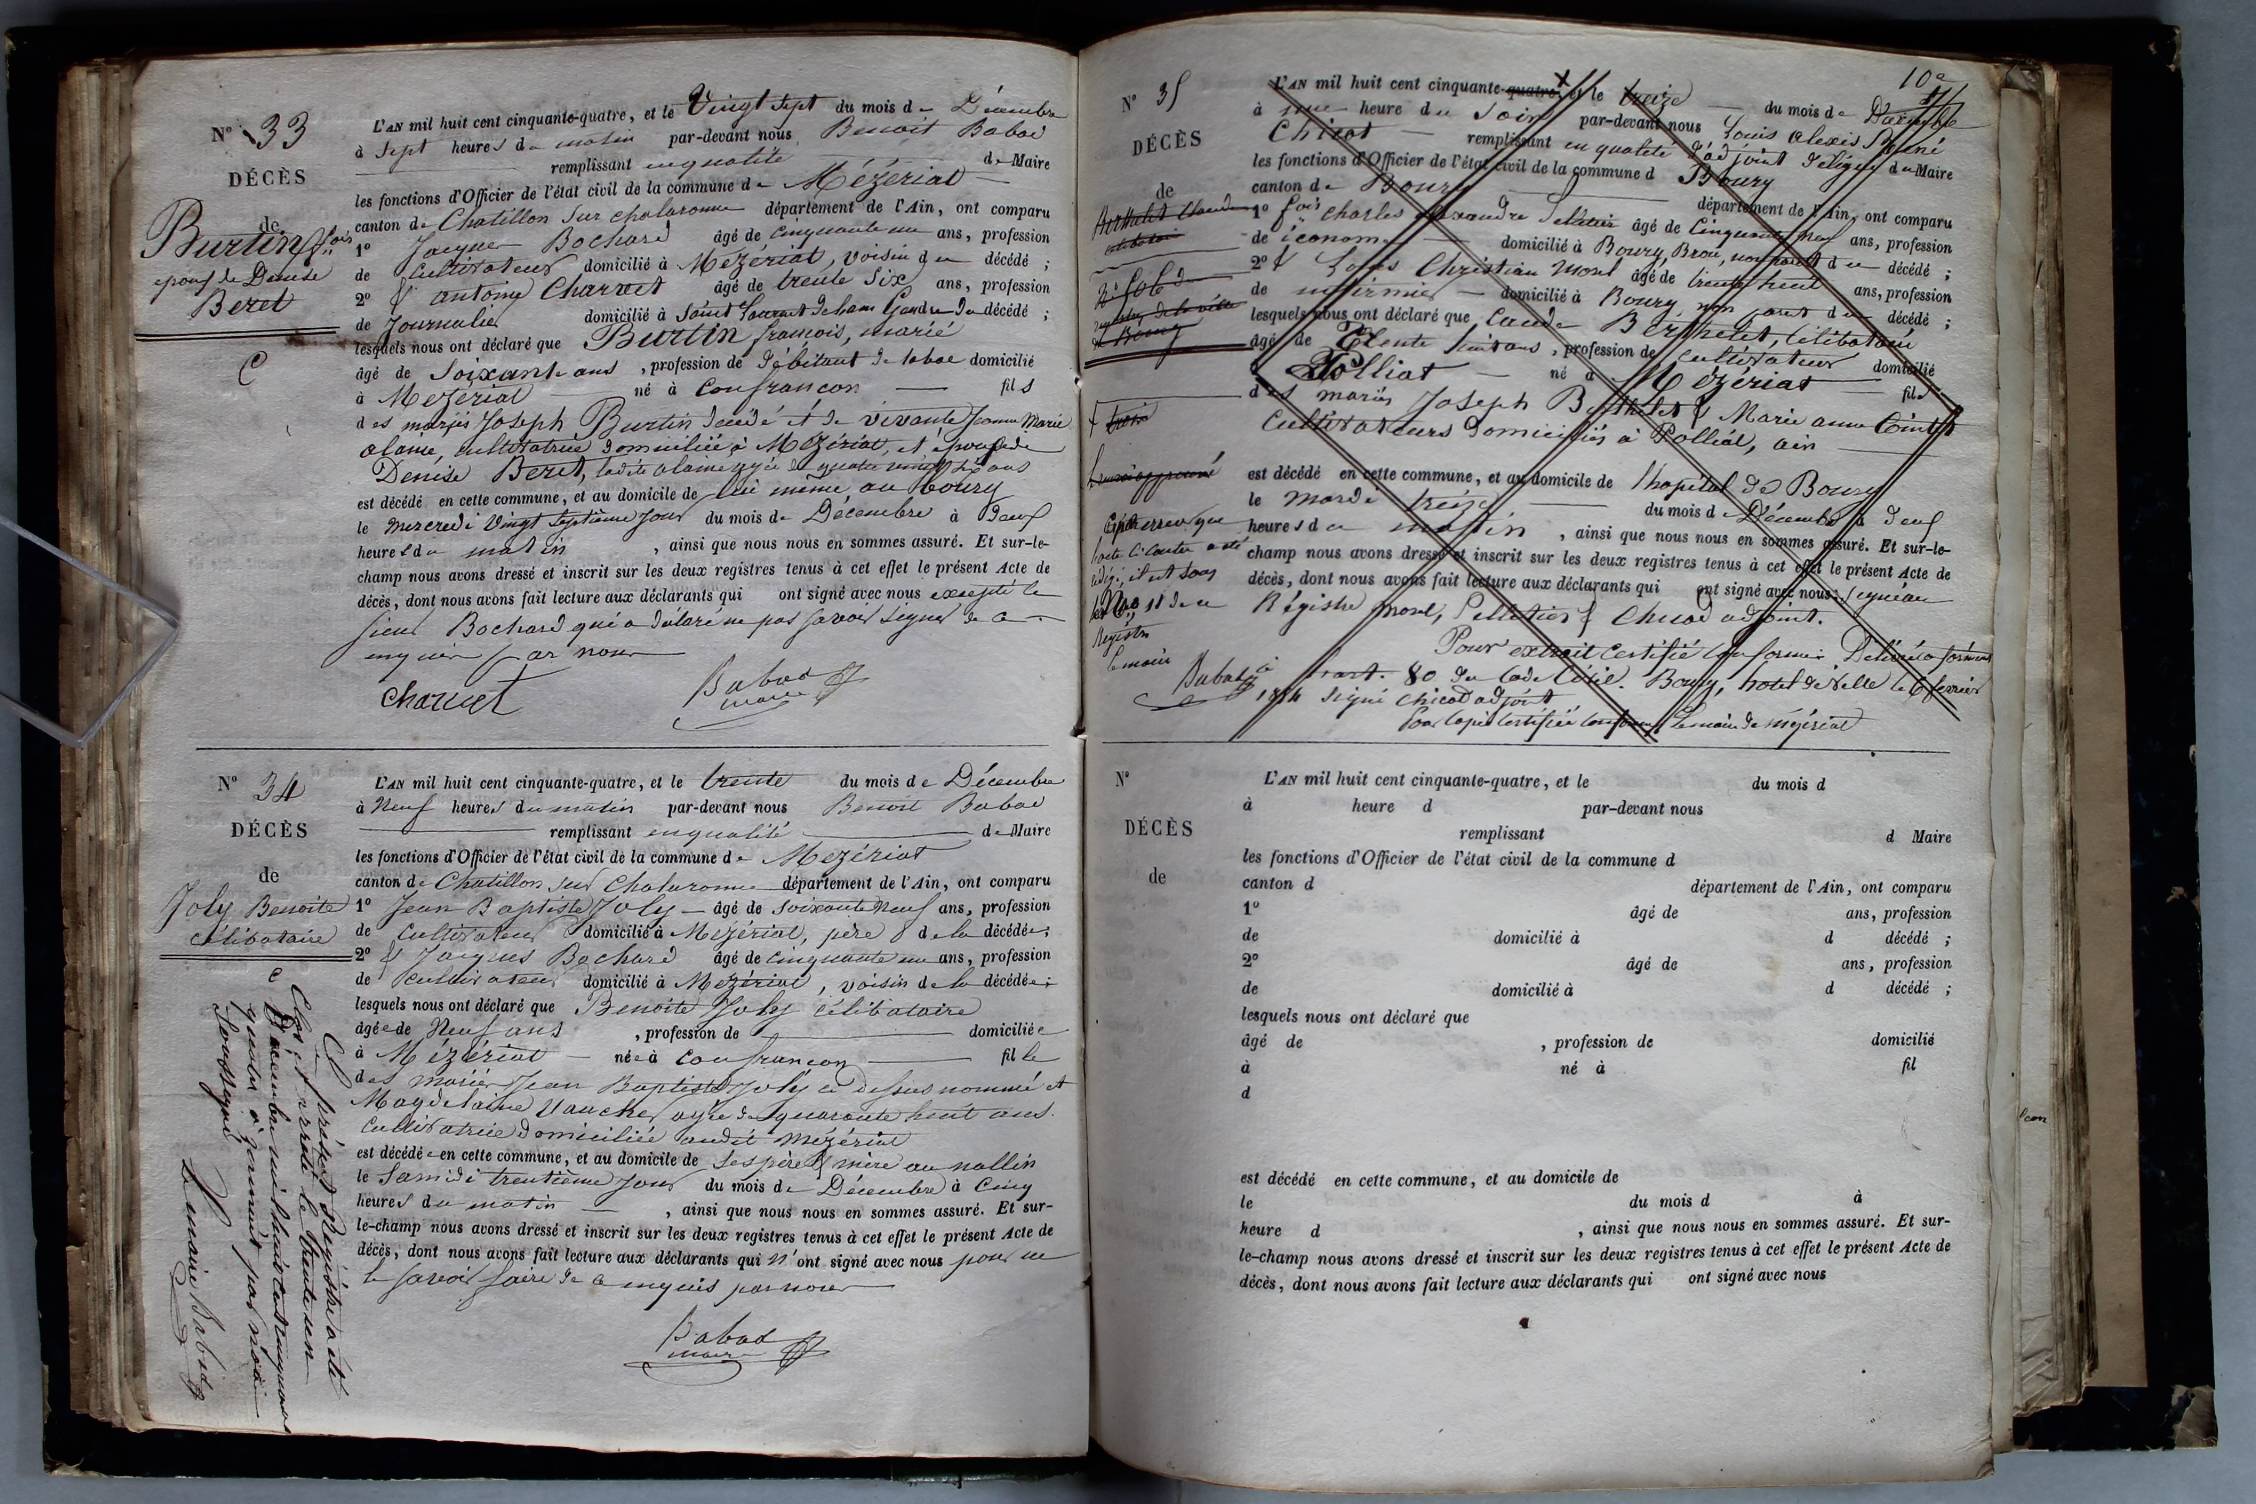 N° 33
DÉCÈS
de
Burtin f.ois
époux de Denise
Beret
C
L'AN mil huit cent cinquante-quatre, et le Vingt sept du mois de Décembre
à sept heures du matin par-devant nous Benoit Babad
remplissant en qualité de Maire
les fonctions d'Officier de l'état civil de la commune de Mézériat
canton de Chatillon sur chalaronne département de l'Ain, ont comparu
1° Jacques Bochard âgé de cinquante un ans, profession
de Cultivateur domicilié à Mézériat, voisin du décédé ;
2° & antoine Charvet âgé de trente six ans, profession
de Journalier domicilié à Saint Laurent Gendre du décédé ;
lesquels nous ont déclaré que Burtin françois, marié
âgé de Soixante ans , profession de débitant de tabac domicilié
à Mézériat né à Confrancon fils
des mariés Joseph Burtin décédé et de vivante Jeanne Marie
alanie, cultivatrice domiciliée à Mézériat, et époux de
Denise Beret, ladite alanie agée de quatre vingt six ans
est décédé en cette commune, et au domicile de lui même au bourg
le mercredi Vingt Septième jour du mois de Décembre à deux
heures du matin , ainsi que nous nous en sommes assuré. Et sur-le-
champ nous avons dressé et inscrit sur les deux registres tenus à cet effet le présent Acte de
décès, dont nous avons fait lecture aux déclarants qui ont signé avec nous excepté le
sieur Bochard qui a déclaré ne pas savoir signer de ce
enquis par nous
Charvet
Babad
maire
N° 34
DÉCÈS
de
Joly Benoite
célibataire
C
L'AN mil huit cent cinquante-quatre, et le trente du mois de Décembre
à Neuf heures du matin par-devant nous Benoit Babad
remplissant en qualité de Maire
les fonctions d'Officier de l'état civil de la commune de Mézériat
canton de Chatillon sur Chalaronne département de l'Ain, ont comparu
1° Jean Baptiste Joly âgé de soixante Neuf ans, profession
de Cultivateur domicilié à Mézériat, père de la décédée;
2° & Jacques Bochard âgé de cinquante un ans, profession
de cultivateur domicilié à Mézériat, voisin de la décédée;
lesquels nous ont déclaré que Benoite Joly célibataire
âgée de Neuf ans , profession de domiciliée
à Mézériat née à Confrancon fille
des mariés Jean Baptiste Joly ci dessus nommé et
Magdelaine Vauché agée de quarante huit ans
Cultivatrice domiciliée audit Mézériat
est décédée en cette commune, et au domicile de ses père & mère au nallin
le Samedi trentième jour du mois de Décembre à Cinq
heures du matin , ainsi que nous nous en sommes assuré. Et sur-
le-champ nous avons dressé et inscrit sur les deux registres tenus à cet effet le présent Acte de
décès, dont nous avons fait lecture aux déclarants qui n'ont signé avec nous pour ne
le savoir faire de ce enquis par nous
Babad
maire
Le présent Régistre a été
Clos et arrété le trente un
Décembre mil huit cent cinquante
quatre à par nous
Soussigné
Le maire Babad
10e
N° 35
DÉCÈS
de
Berthelet Claude
célibataire
L'AN mil huit cent cinquante-quatre, et le treize du mois de Décembre
à une heure du Soir par-devant nous Louis alexis René
Chicot remplissant en qualité d'adjoint délégué du Maire
les fonctions d'Officier de l'état civil de la commune d Bourg
canton de Bourg département de l'Ain, ont comparu
1° charles alexandre Pelletier âgé de Cinquante Neuf ans, profession
de économe domicilié à Bourg, Brou, non parent du décédé ;
2° & Louis Christian Morel âgé de trente huit ans, profession
de infirmier domicilié à Bourg non parent du décédé ;
lesquels nous ont déclaré que Claude Berthelet, célibataire
âgé de Trente huit ans , profession de cultivateur domicilié
à Polliat né à Mézériat fils
des mariés Joseph Berthelet & Marie anne Cointet
Cultivateurs domiciliés à Polliat, ain
est décédé en cette commune, et au domicile de l'hopital de Bourg
le Mardi treize du mois de Décembre à deux
heures du matin , ainsi que nous nous en sommes assuré. Et sur-le-
champ nous avons dressé et inscrit sur les deux registres tenus à cet effet le présent Acte de
décès, dont nous avons fait lecture aux déclarants qui ont signé avec nous
Régistre morel, Pelletier & Chicot adjoint.
Pour extrait Certifié Conforme Délivré
l'art. 80 du Code Civil. Bourg, hotel de ville le 6 fevrier
1854 signé Chicot adjoint
Pour copie certifiée conforme Le maire de Mézériat
Babad
c'est par erreur que
l'acte ci contre a été
rédigé, il est sous
le No 11 de ce
Régistre
le maire
N°
DÉCÈS
de
L'AN mil huit cent cinquante-quatre, et le du mois d
à heure d par-devant nous
remplissant d Maire
les fonctions d'Officier de l'état civil de la commune d
canton d département de l'Ain, ont comparu
1° âgé de ans, profession
de domicilié à d décédé ;
2° âgé de ans, profession
de domicilié à d décédé ;
lesquels nous ont déclaré que
âgé de , profession de domicilié
à né à fil
d
est décédé en cette commune, et au domicile de
le du mois d à
heure d , ainsi que nous nous en sommes assuré. Et sur-
le-champ nous avons dressé et inscrit sur les deux registres tenus à cet effet le présent Acte de
décès, dont nous avons fait lecture aux déclarants qui ont signé avec nous